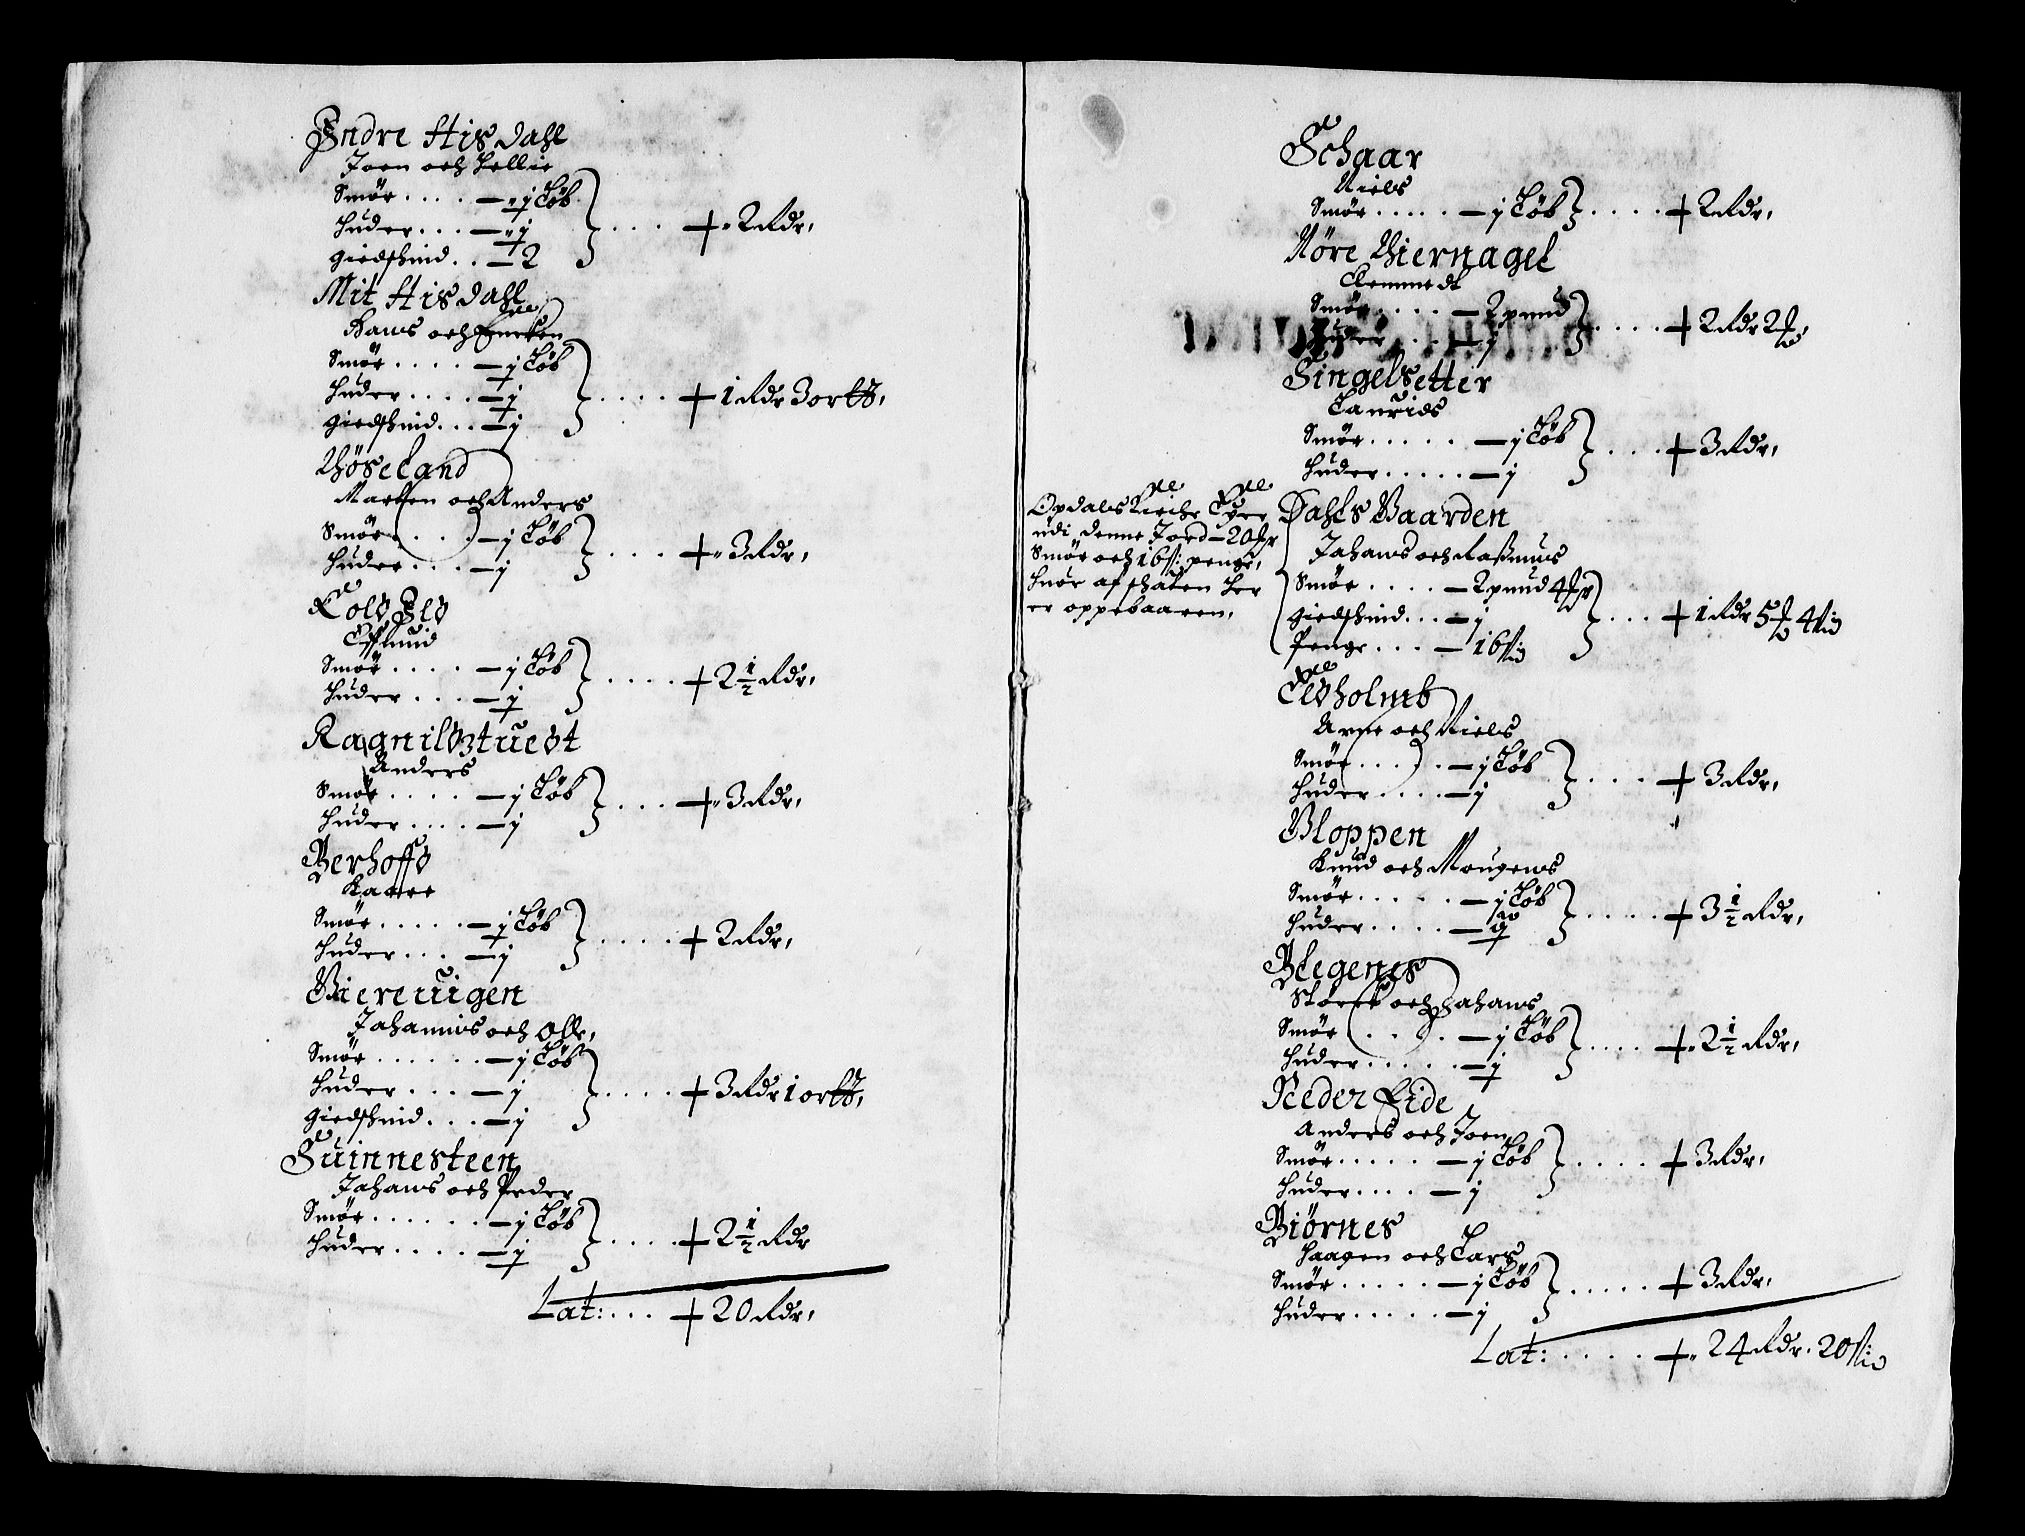 Indre Hisdahl
Joen och Hellie
Smør .... — j Løb
Huder ... — j
giedschind .. — 2
+ 2 Rdr,
Mit Hisdahl
Hans och
Smør .... — j Løb
Huder .... — j
giedschind ... — j
+ 1 Rdr 3 ortt,
Høseland
Marthen och Anders
Smør .... — j Løb
Huder ... — j
+ 3 Rdr,
Smør .... — j Løb
Huder ... — j
+ 2 1/2 Rdr,
Ragnildztuedt
Anders
Smør .... — j Løb
Huder .... — j
+ 3 Rdr,
Berhoffd
Kaare
Smør ..... — j Løb
Huder ... — j
+ 2 Rdr,
Viereuigen
Johannis och Olle,
Smør ...... — j Løb
Huder ... — j
giedschind ... — j
+ 3 Rdr 1 ortt,
Suinnesteen
Johans och Peder
Smør ...... — j Løb
Huder .... — j
+ 2 1/2 Rdr
Lat: ... + 20 Rdr,
Schaar
Niels
Smør ..... — j Løb
+ 2 Rdr,
Nøre Viernagel
Clemmedt
Smør .... — 2 pund
Huder ... — j
+ 2 Rdr 2 ß,
Singelsetter
Laurids
Smør ..... — j Løb
Huder ..... — j
+ 3 Rdr,
Opdals Kirche Eyer
udi denne Jord — 20
Smør och 16 ß: penge,
huor af schaten her
er oppebaaren,
Dahls Vaarden
Johans och Rasmus
Smør .... — 2 pund 4
giedschind ... — j
Penge ... — 16 ß
+ 1 Rdr 5 4 ß
Eldholmb
Arne och Niels
Smør .... — j Løb
Huder .... — j
+ 3 Rdr,
Bloppen
Knud och Mougens
Smør ..... — j Løb
Huder ....
+ 3 1/2 Rdr,
Blegenes
Størck och Johans
Smør .... — j Løb
Huder ..... — j
+ 2 1/2 Rdr,
Neder Eide
Anders och Joen
Smør ..... — j Løb
Huder .... — j
+ 3 Rdr,
Biørnes
Haagen och Lars
Smør ..... — j Løb
Huder ..... — j
+ 3 Rdr,
Lat: .... + 24 Rdr. 20 ß